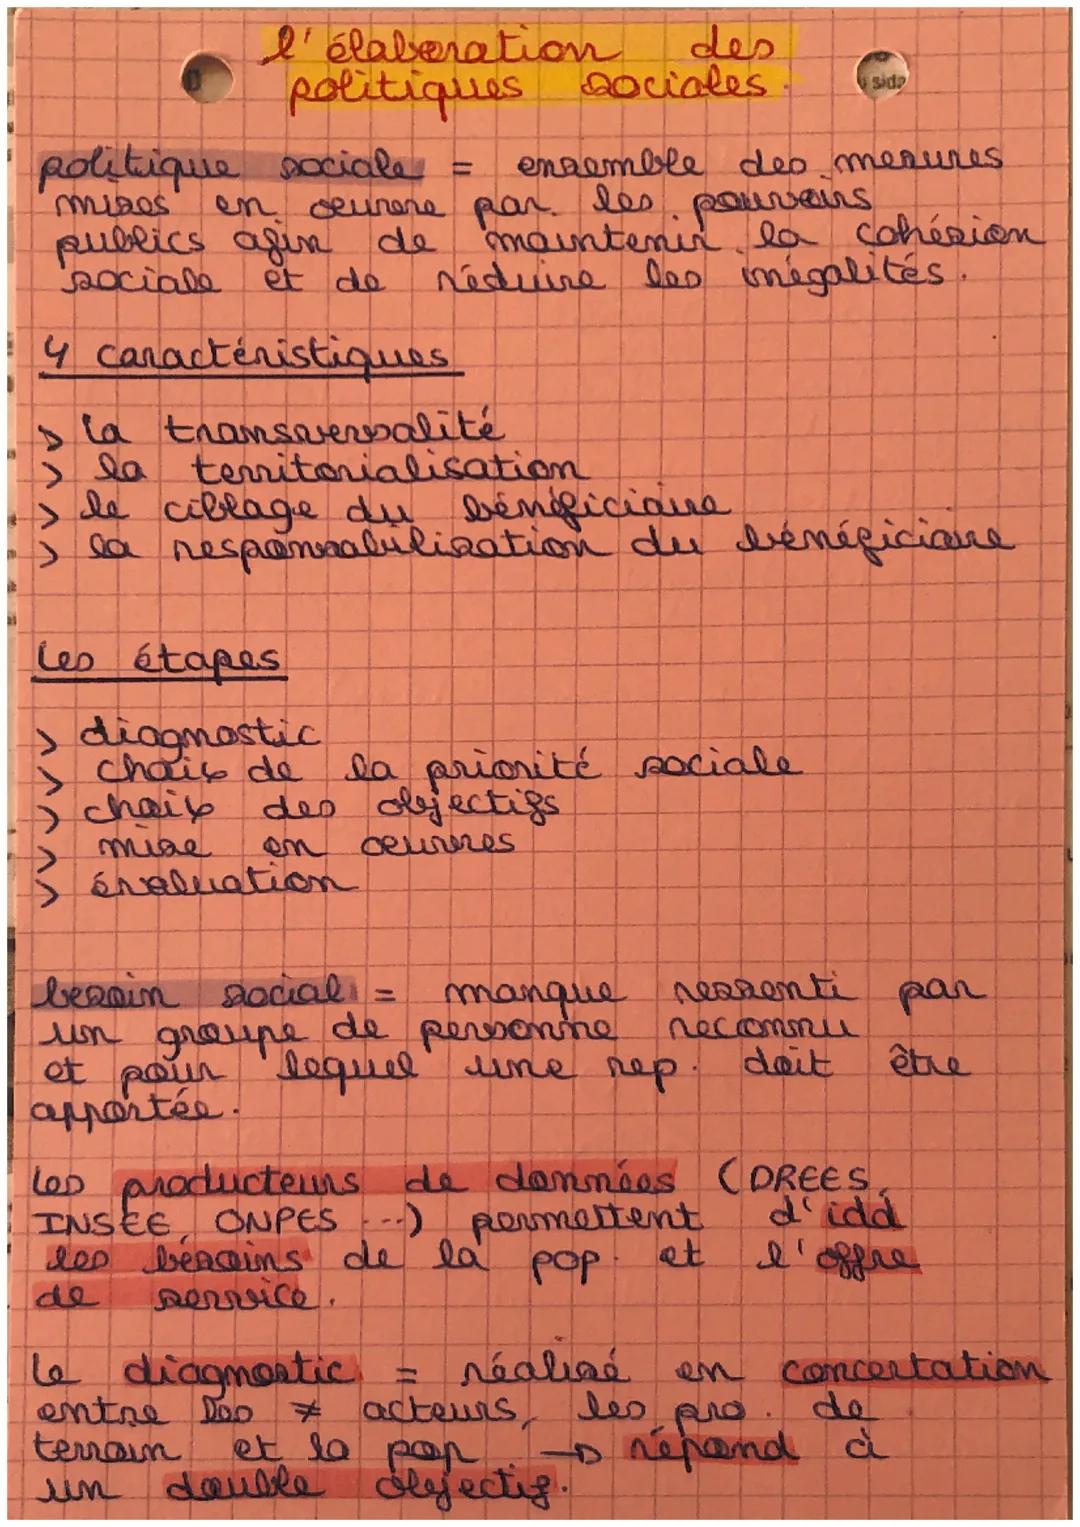 l'élaboration des
politiques sociales.
sida
politique sociale = ensemble des mesures
mises en oeuvre par les pouvoirs
publics afin de maintenir la cohésion
sociale et de réduire les inégalités.
4 caractéristiques
> la transversalité
> la territorialisation
> le ciblage du bénéficiaire
> la responsabilisation du bénéficiaire
Les étapes
> diagnostic
> choix de la priorité sociale
> choix des objectifs
> mise en oeuvres
> évaluation
besoin social = manque ressenti par
un groupe de personne reconnu
et pour lequel une rep. doit être
apportée.
Les producteurs de données (DREES,
INSEE, ONPES ...) permettent d'idd
les besoins de la pop. et l'offre
de service.
Le diagnostic = réalisé en concertation
entre les ≠ acteurs, les pro. de
terrain et la pop → répond à
un double objectif.